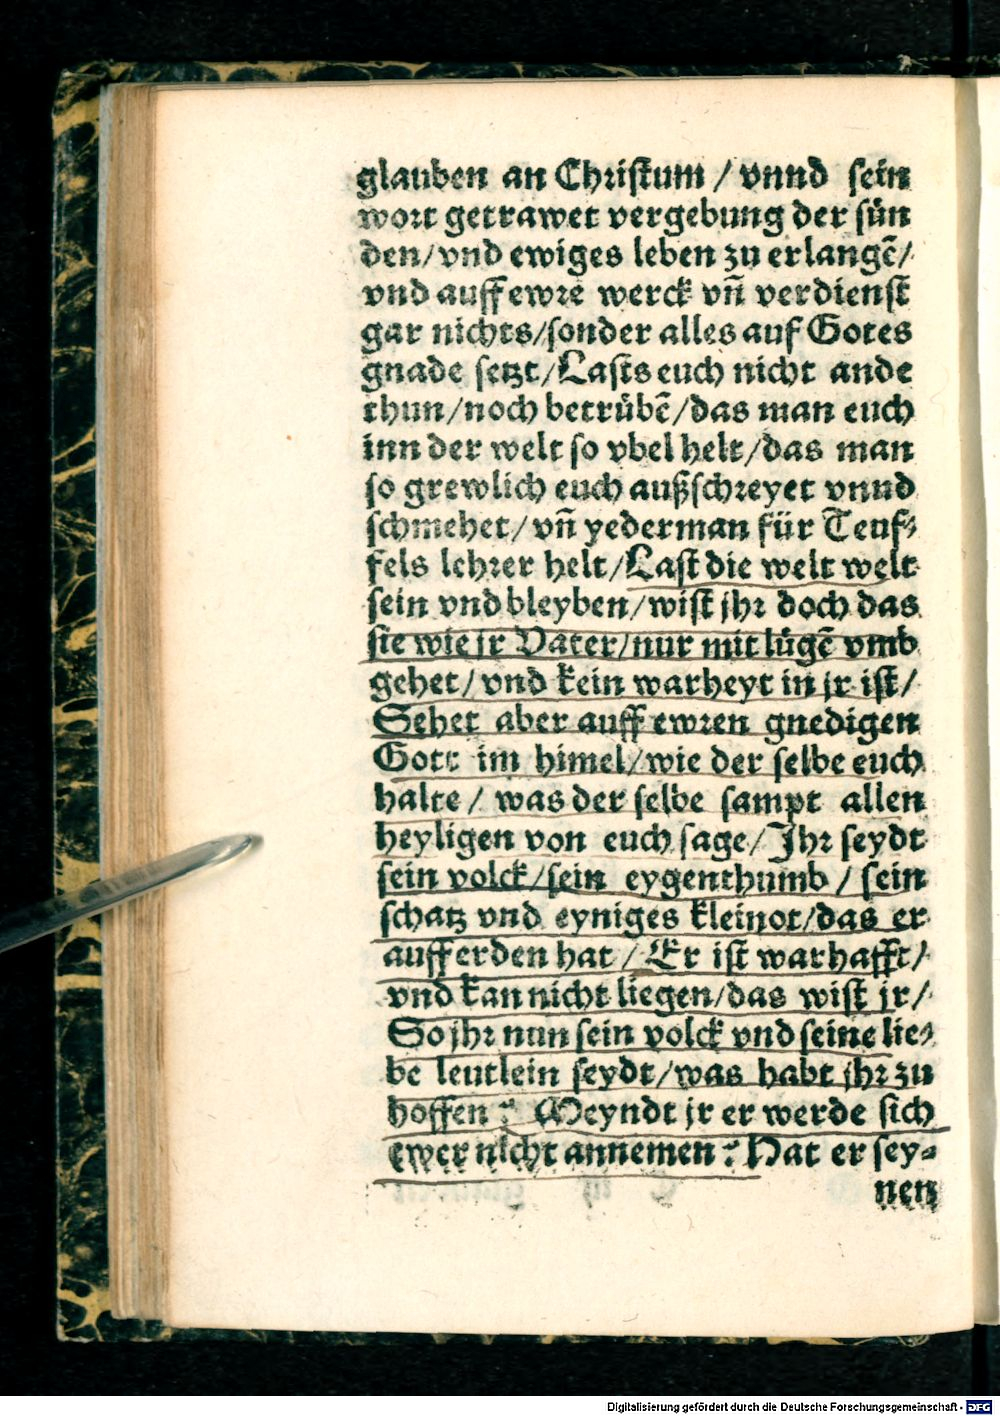 glauben an Christum / vnnd sein
wort getrawet vergebung der sün
den/vnd ewiges leben zu erlangẽ/
vnd auff ewre werck vñ verdienst
gar nichts/sonder alles auf Gotes
gnade setzt/Lasts euch nicht ande
thun/noch betrübẽ/das man euch
inn der welt so vbel helt/das man
so grewlich euch außschreyet vnnd
schmehet/vñ yederman für Teuf-
fels lehrer helt/Last die welt welt
sein vnd bleyben/wist jhr doch das
sie wie jr Vater/nur mit lügẽ vmb
gehet/vnd kein warheyt in jr ist/
Sehet aber auff ewren gnedigen
Gott im himel/wie der selbe euch
halte / was der selbe sampt allen
heyligen von euch sage/Jhr seydt
sein volck/sein eygenthumb / sein
schatz vnd eyniges kleinot/das er
auff erden hat / Er ist warhafft/
vnd kan nicht liegen/das wist jr/
So jhr nun sein volck vnd seine lie-
be leutlein seydt/was habt jhr zu
hoffen? Meyndt jr er werde sich
ewer nicht annemen? Hat er sey-
nen
Digitalisierung gefördert durch die Deutsche Forschungsgemeinschaft - DFG